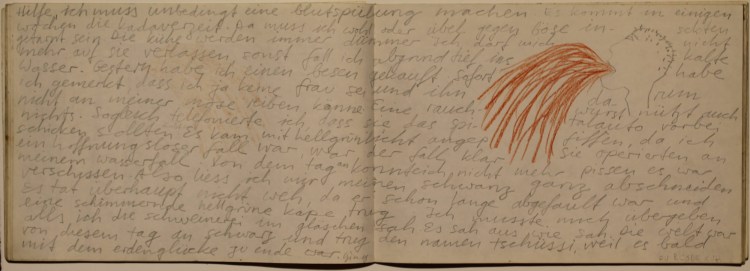 Hilfe ich muss unbedingt eine Blutspielung machen Es kommt in einigen
wochen die kadaverzeit. Da muss ich wohl oder übel gegen böse in- sekten
gewappnet sein Die kühe werden immer dümmer Ich darf mich nicht
mehr auf sie verlassen sonst fall ich abgrundtief ins kalte
Wasser. Gestern habe ich einen besen gekauft Sofort habe
ich gemerkt dass ich ja keine frau sei und ihn nun
nicht an meiner möse reiben kanne Eine lauch- da wurst nützt auch
nichts. Sogleich telefonierte ich dass sie das spi- talauto vorbei
schicken sollten Es kam mit hellgrünlicht angepfiffen, da ich
ein hoffnungsloser fall war, war der fall klar Sie operierten an
meinem wasserfall. Von dem tag an konnte ich nicht mehr pissen es war
verschissen. Also liess ich mir meinen schwanz ganz abschneiden
Es tat überhaupt nicht weh, da er schon lange abgefault war und
eine schimmernde hellgrüne kappe trug Ich musste mich übergeben
als ich die schweinerei im fläschen sah Es sah aus wie sah. Die welt war
von diesem tag an schwarz und trug den namen tschüssi, weil es bald
mit dem erdenglücke zu ende war.